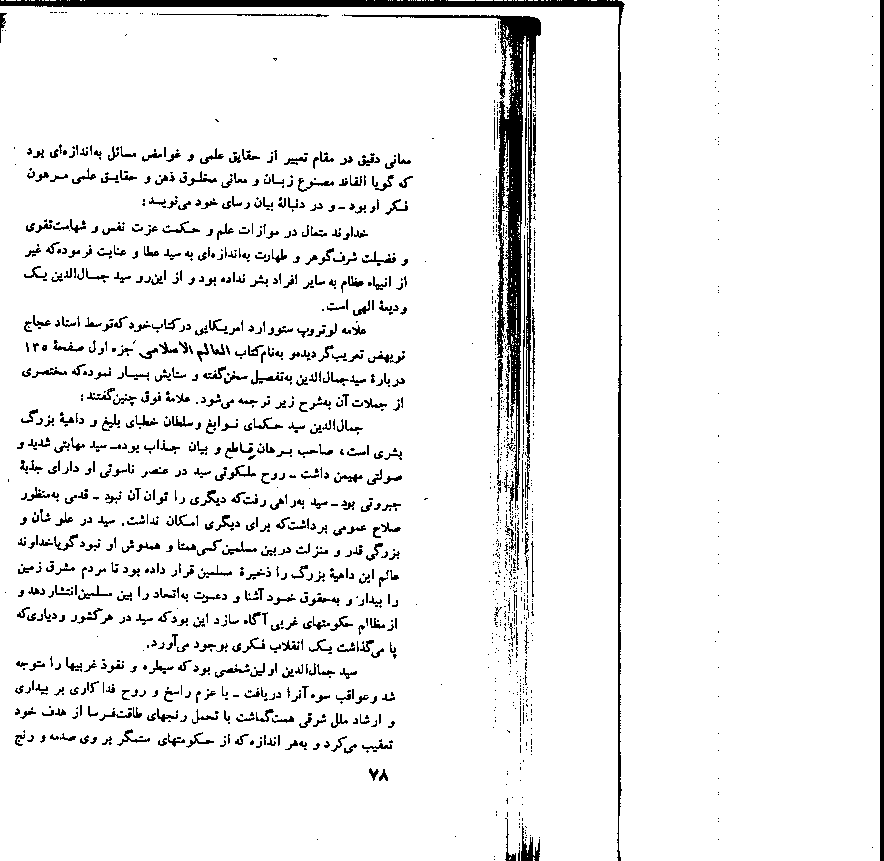 معانی دقیق در مقام تعبیر از حقایق علمی و غوامض مسائل به‌اندازه‌ای بود
که گویا الفاظ مصنوع زبان و معانی مخلوق ذهن و حقایق علمی مرهون
فکر او بود ـ و در دنبالهٔ بیان رسای خود می‌نویسد:
خداوند متعال در موازات علم و حکمت عزت نفس و شهامت‌تقوی
و فضیلت شرف‌گوهر و طهارت به‌اندازه‌ای به سید عطا و عنایت فرموده‌که غیر
از انبیاء عظام به سایر افراد بشر نداده بود و از این‌رو سید جمال‌الدین یک
ودیعهٔ الهی است.
علامه لوتروپ ستووارد امریکایی درکتاب‌خود که‌توسط استاد عجاج
نویهض تعریب‌گردیده‌و به‌نام‌کتاب العالم الاسلامی جزء اول صفحهٔ ۱۳۵
دربارهٔ سیدجمال‌الدین به‌تفصیل سخن‌گفته و ستایش بسیار نموده‌که مختصری
از جملات آن به‌شرح زیر ترجمه می‌شود. علامهٔ فوق چنین‌گفتند:
جمال‌الدین سید حکمای نوابغ وسلطان خطبای بلیغ و داهیهٔ بزرگ
بشری است، صاحب برهان قاطع و بیان جذاب بوده‌ـ سید مهابتی شدید و
صولتی مهیمن داشت ـ روح ملکوتی سید در عنصر ناسوتی او دارای جذبهٔ
جبروتی بود ـ سید به‌راهی رفت‌که دیگری را توان آن نبود ـ قدمی به‌منظور
صلاح عمومی برداشت‌که برای دیگری امکان نداشت. سید در علو شأن و
بزرگی قدر و منزلت دربین مسلمین‌کسی‌همتا و همدوش او نبود گویاخداوند
عالم این داهیهٔ بزرگ را ذخیرهٔ مسلمین قرار داده بود تا مردم مشرق زمین
را بیدار و به‌حقوق خود آشنا و دعوت به‌اتحاد را بین مسلمین‌انتشاردهد و
ازمظالم حکومتهای غربی آگاه سازد این بودکه سید در هرکشور ودیاری‌که
پا می‌گذاشت یک انقلاب فکری بوجود می‌آورد.
سید جمال‌الدین اولین‌شخصی بود که سیطره و نفوذ غربیها را متوجه
شد وعواقب سوء آنرا دریافت ـ با عزم راسخ و روح فداکاری بر بیداری
و ارشاد ملل شرقی همت‌گماشت با تحمل رنجهای طاقت‌فرسا از هدف خود
تعقیب می‌کرد و به‌هر اندازه‌که از حکومتهای ستمگر بر وی صدمه و رنج
۷۸